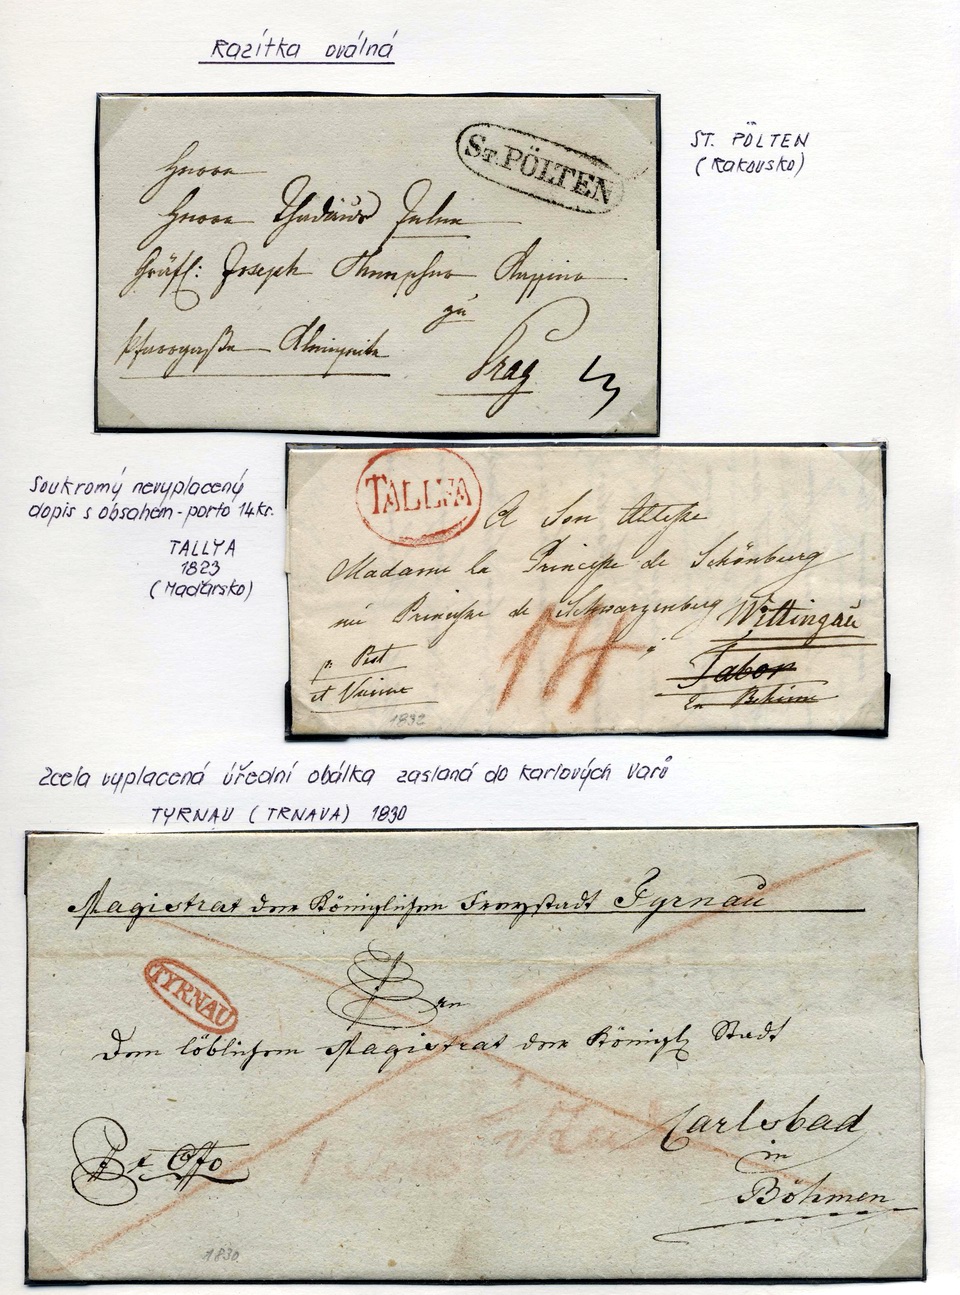 Razítka oválná
St. PÖLTEN
ST. PÖLTEN
(Rakousko)
Herrn
Herrn Thadäus
Gräfl: Joseph
zu
Prag
Soukromý nevyplacený
dopis s obsahem - porto 14 kr.
TALLYA
1823
(Maďarsko)
TALLYA
A Son Altesse
Madame la Princesse de Schönburg
née Princesse de Schwarzenberg Wittingau
pr Pest
et Vienne
14
Tabor
en Bohême
1832
Zcela vyplacená úřední obálka zaslaná do Karlových Varů
TYRNAU (TRNAVA) 1830
Magistrat der Königlichen Freystadt Tyrnau
TYRNAU
An
Den löblichen Magistrat der Königl Stadt
Carlsbad
in
Böhmen
Ex Offo
1830